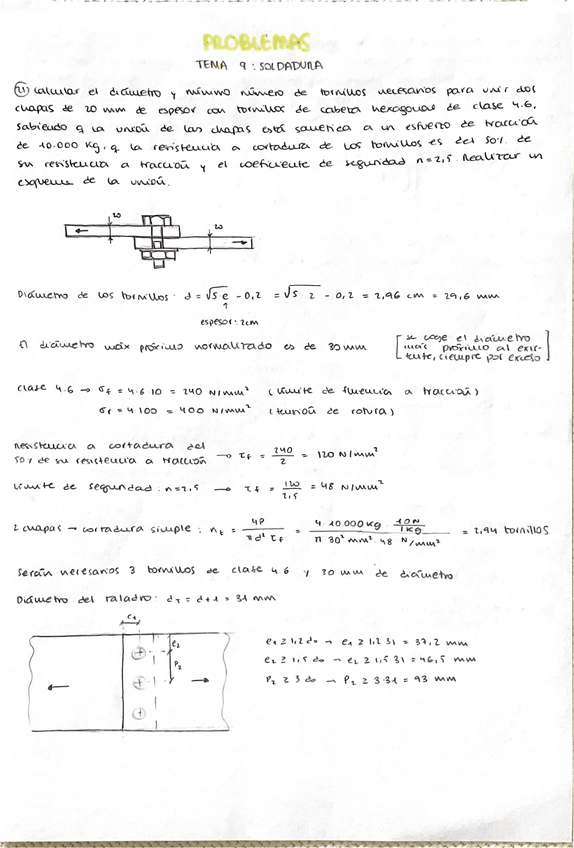 PROBLEMAS
TEMA 9: SOLDADURA
21 Calcular el diámetro y mínimo número de tornillos necesarios para unir dos
chapas de 20 mm de espesor con tornillos de cabeza hexagonal de clase 4.6,
sabiendo q la unión de las chapas está sometica a un esfuerzo de tracción
de 10.000 Kg, q la resistencia a cortadura de los tornillos es del 50% de
su resistencia a tracción y el coeficiente de seguridad n=2,5. Realizar un
esquema de la unión.
20
20
Diámetro de los tornillos: d = √5 e - 0,2 = √5 2 - 0,2 = 2,96 cm = 29,6 mm
espesor: 2cm
El diámetro más próximo normalizado es de 30 mm [se coge el diámetro
más próximo al exis-
tente, siempre por exceso]
Clase 4.6 → σf = 4·6·10 = 240 N/mm² (límite de fluencia a tracción)
σr = 4·100 = 400 N/mm² (tensión de rotura)
Resistencia a cortadura del
50% de su resistencia a tracción → τf = 240/2 = 120 N/mm²
Límite de seguridad: n=2,5 → τf = 120/2,5 = 48 N/mm²
2 chapas → cortadura simple: nt = 4P/π d² τf = 4·10.000 Kg · 10N/1Kg / π 30² mm² · 48 N/mm² = 2,94 tornillos
Serán necesarios 3 tornillos de clase 4.6 y 30 mm de diámetro
Diámetro del taladro: dT = d+1 = 31 mm
e1
e2
P2
e1 ≥ 1,2 do → e1 ≥ 1,2·31 = 37,2 mm
e2 ≥ 1,5 do → e2 ≥ 1,5·31 = 46,5 mm
P2 ≥ 3 do → P2 ≥ 3·31 = 93 mm